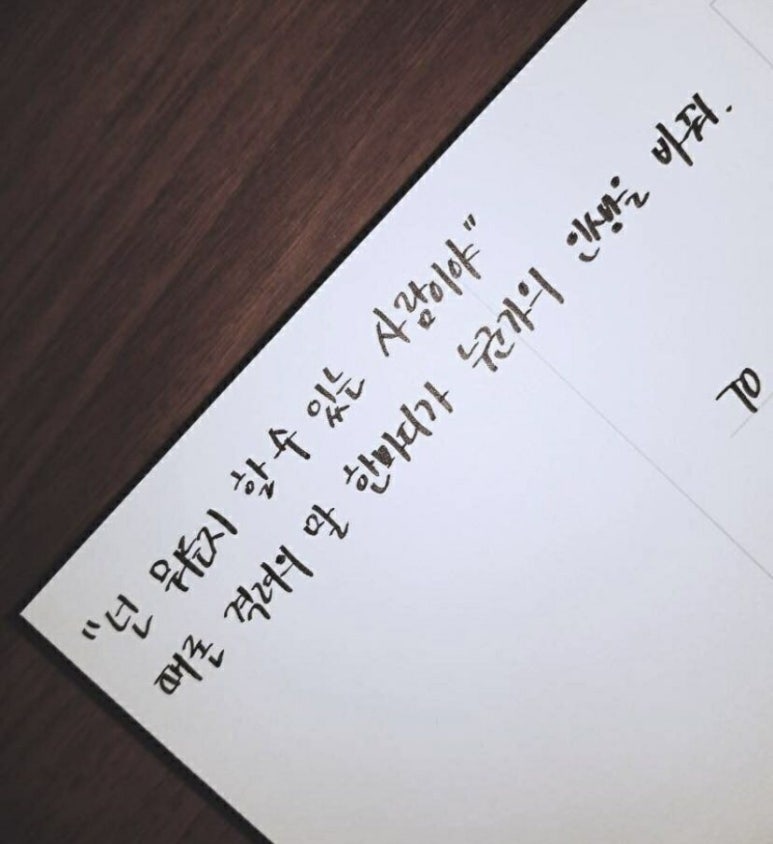 "넌 뭐든지 할 수 있는 사람이야"
때론 격려의 말 한마디가 누군가의 인생을 바꿔.
TO